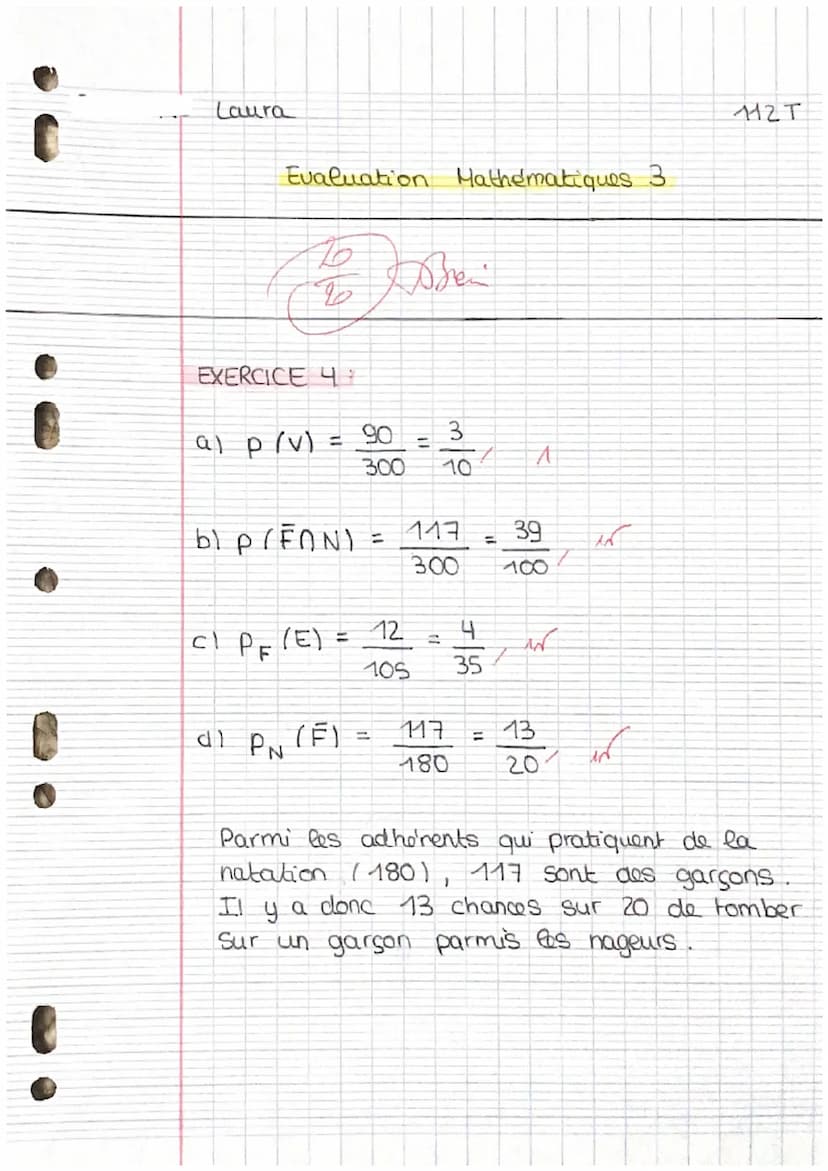 Laura 112T
Evaluation Mathématiques 3
20/20
EXERCICE 4 :
a) p(V) = 90/300 = 3/10 1
b) p(F̄∩N) = 117/300 = 39/100
c) P_F(E) = 12/105 = 4/35
d) P_N(F̄) = 117/180 = 13/20
Parmi les adhérents qui pratiquent de la
natation (180), 117 sont des garçons.
Il y a donc 13 chances sur 20 de tomber
sur un garçon parmis les nageurs.